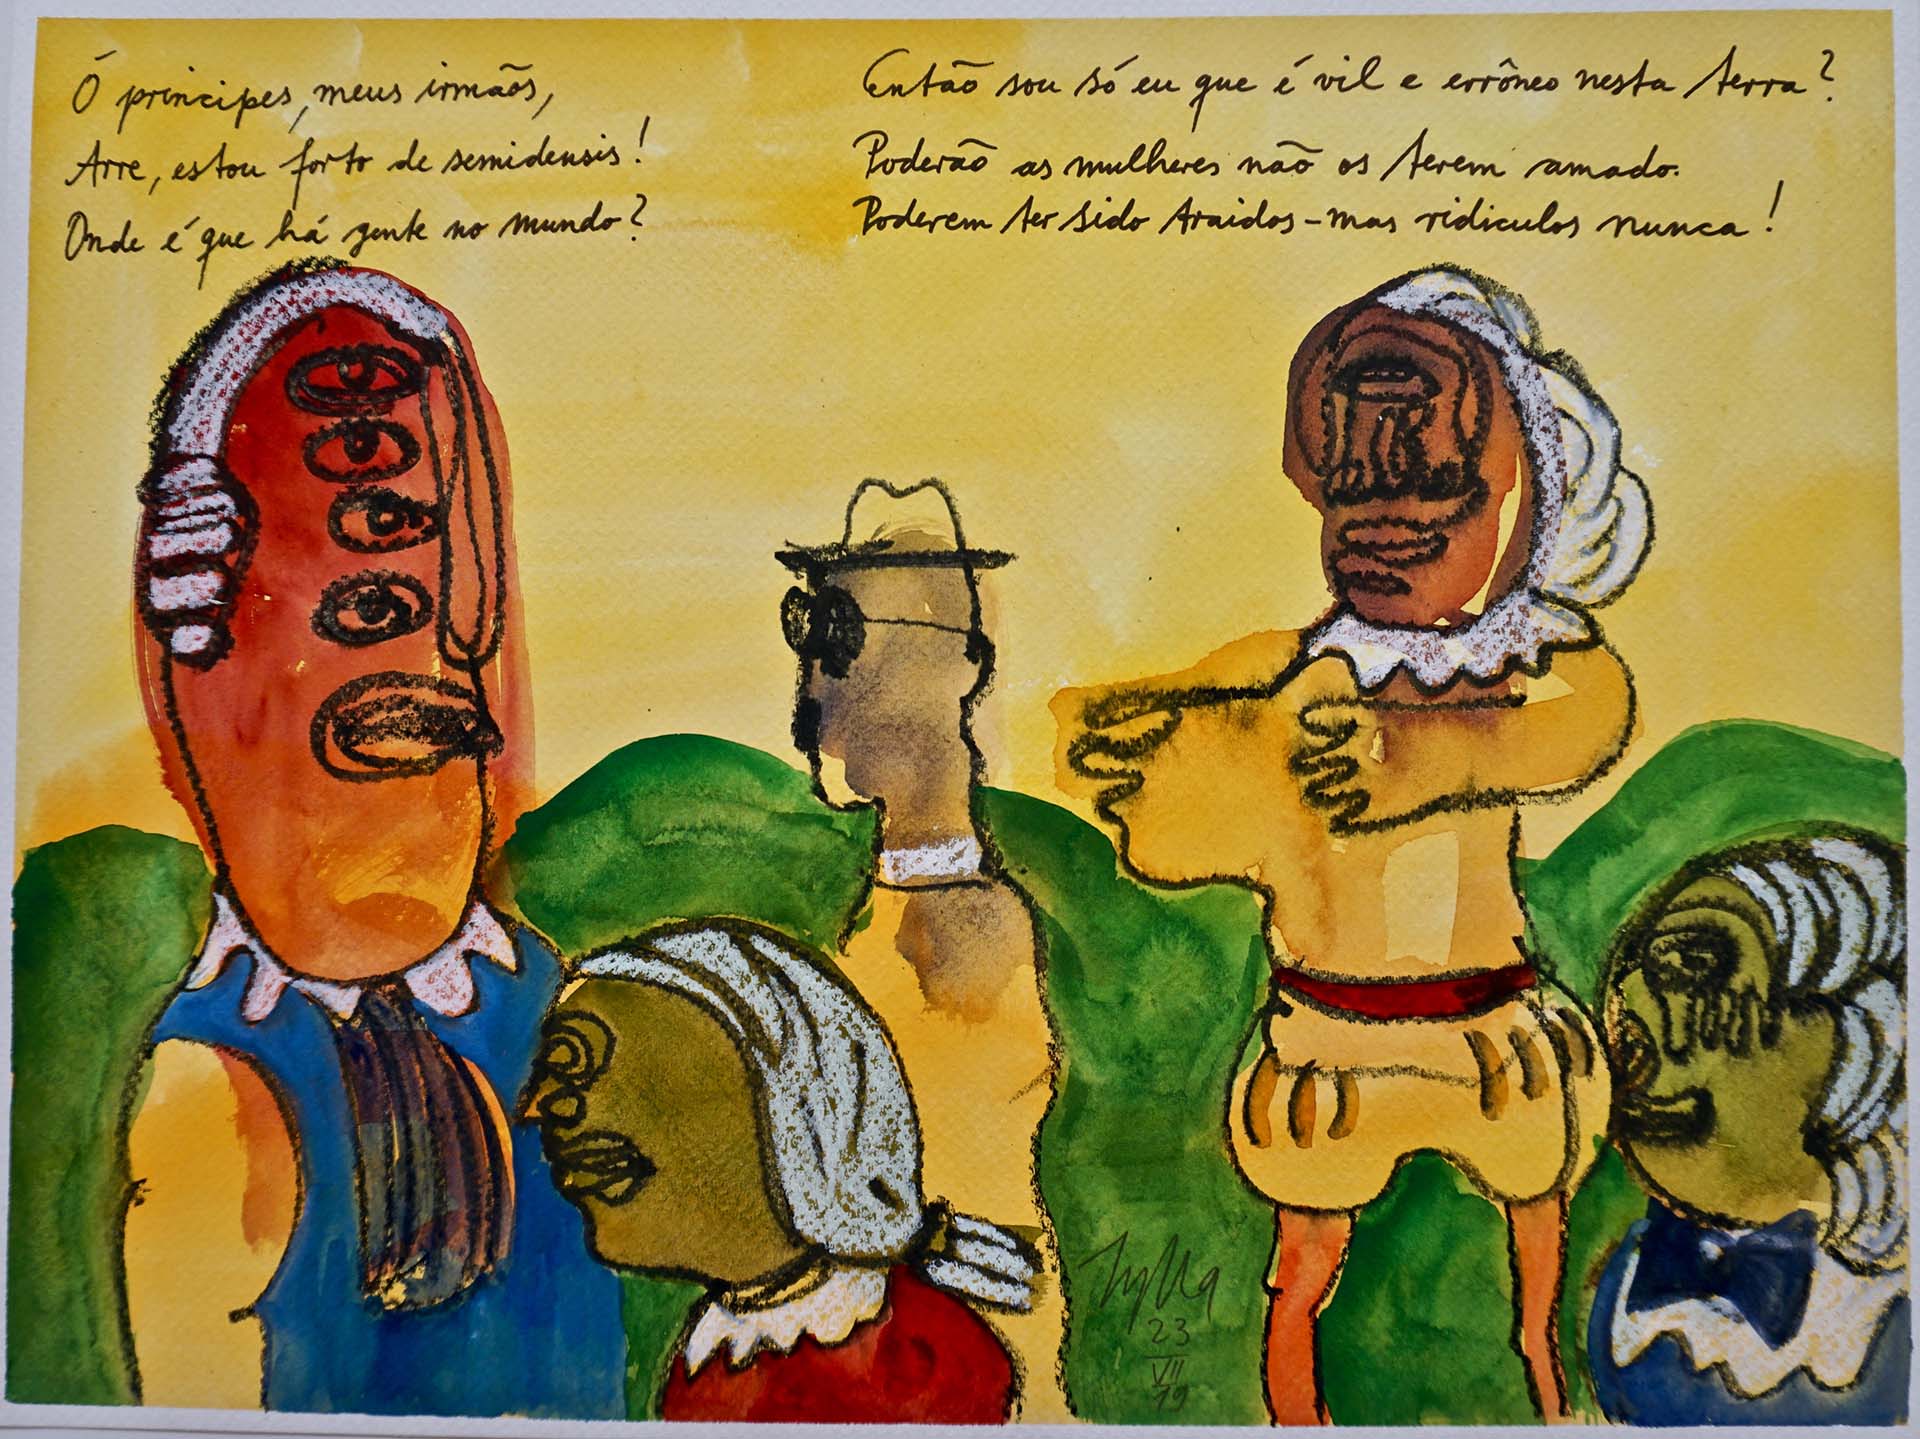 Ó principes, meus irmãos,
Arre, estou farto de semideusis!
Onde é que há gente no mundo?
Então sou só eu que é vil e errôneo nesta terra?
Poderão as mulheres não os terem amado.
Poderem ter sido traidos – mas ridiculos nunca!
23
VII
19